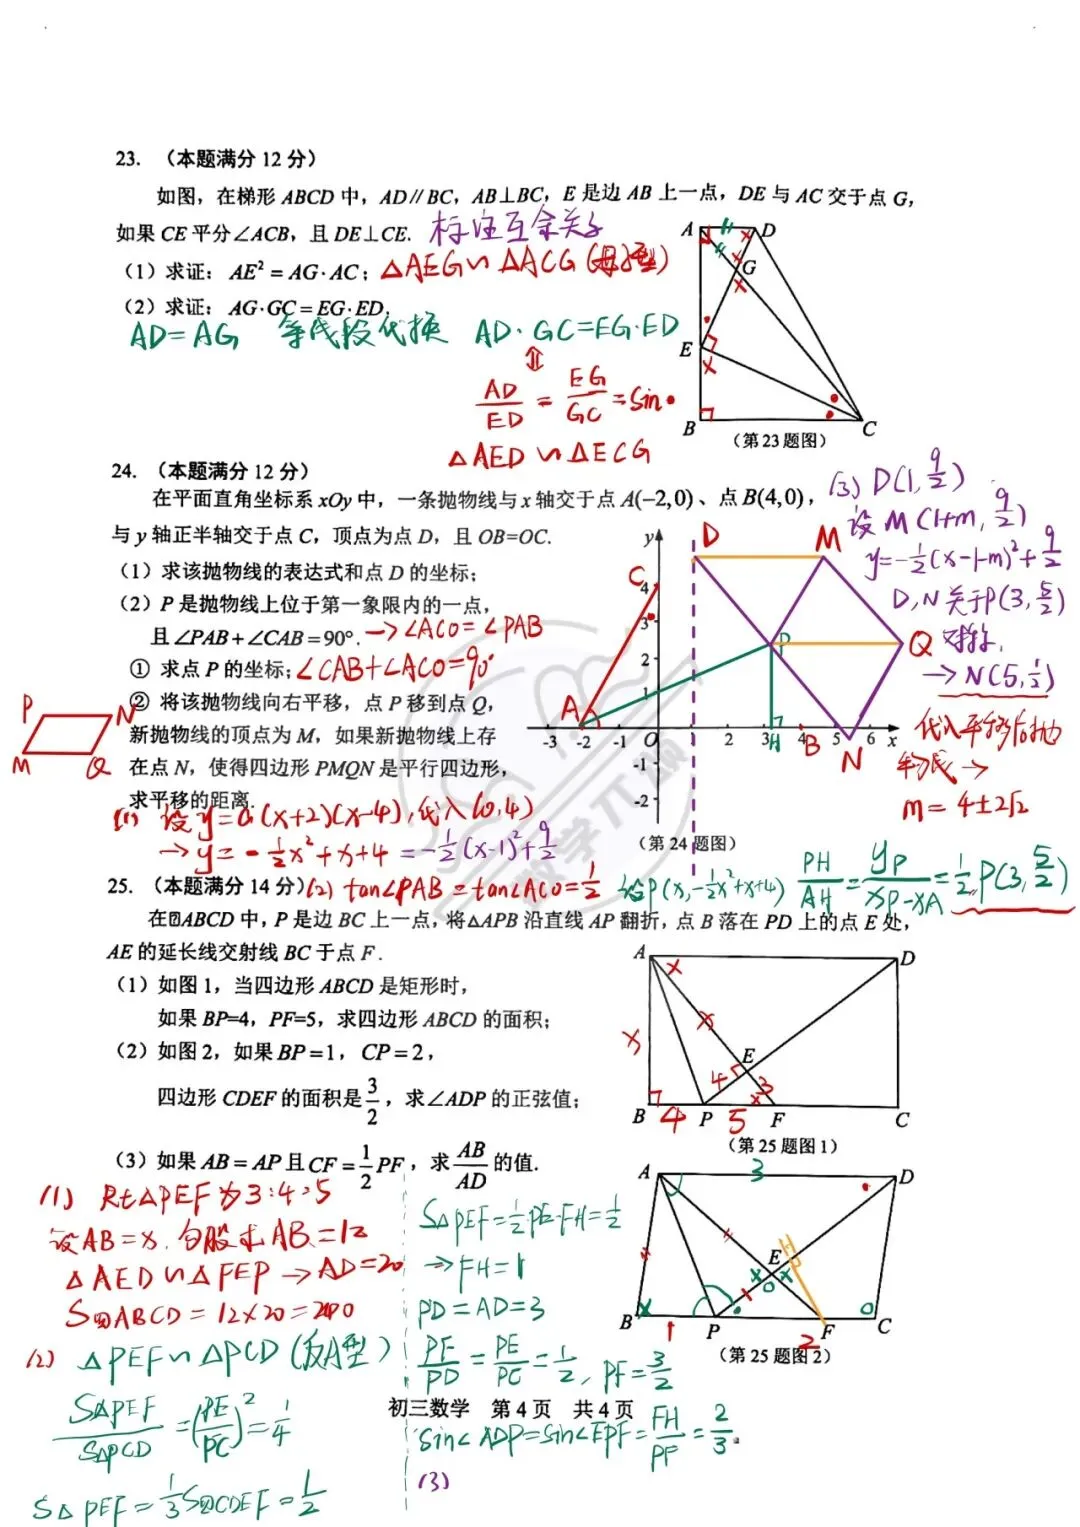 23. （本题满分 12 分）
如图，在梯形 ABCD 中，AD∥BC，AB⊥BC，E 是边 AB 上一点，DE 与 AC 交于点 G，
如果 CE 平分∠ACB，且 DE⊥CE. 标注互余关系
（1）求证：AE²=AG·AC； △AEG∽△ACG (母子型)
（2）求证：AG·GC=EG·ED.
AD=AG, 等线段代换 AD·GC=EG·ED
⇕
AD/ED = EG/GC = sin•
△AED∽△ECG
A D G E B C
（第23题图）
24. （本题满分 12 分）
在平面直角坐标系 xOy 中，一条抛物线与 x 轴交于点 A(−2,0)、点 B(4,0)，
与 y 轴正半轴交于点 C，顶点为点 D，且 OB=OC.
（1）求该抛物线的表达式和点 D 的坐标；
（2）P 是抛物线上位于第一象限内的一点，
且∠PAB+∠CAB=90°. →∠ACO=∠PAB
① 求点 P 的坐标； ∠CAB+∠ACO=90°
② 将该抛物线向右平移，点 P 移到点 Q，
新抛物线的顶点为 M，如果新抛物线上存
在点 N，使得四边形 PMQN 是平行四边形，
求平移的距离.
P N M Q
y D M C 4 3 2 1 P Q A -3 -2 -1 O 2 3 H 4 B 5 N 6 x -1 -2
（第 24 题图）
(3) D(1, 9/2)
设 M(1+m, 9/2)
y=-1/2(x-1-m)²+9/2
D, N 关于P(3, 5/2)
对称,
→ N(5, 1/2)
代入平移后抛
物线 →
m= 4±2√2
(1) 设 y=a(x+2)(x-4), 代入(0,4)
→ y=-1/2x²+x+4 =-1/2(x-1)²+9/2
(2) tan∠PAB=tan∠ACO=1/2 设P(x,-1/2x²+x+4) PH/AH = yP/(xP-xA) = 1/2, P(3, 5/2)
25. （本题满分 14 分）
在▱ABCD 中，P 是边 BC 上一点，将△APB 沿直线 AP 翻折，点 B 落在 PD 上的点 E 处，
AE 的延长线交射线 BC 于点 F.
（1）如图 1，当四边形 ABCD 是矩形时，
如果 BP=4，PF=5，求四边形 ABCD 的面积；
（2）如图 2，如果 BP=1，CP=2，
四边形 CDEF 的面积是 3/2，求∠ADP 的正弦值；
（3）如果 AB=AP 且 CF=1/2 PF，求 AB/AD 的值.
A D x x x E 4 3 x B 4 P 5 F C
（第 25 题图 1）
A 3 D H E x x O x O B 1 P 2 F C
（第 25 题图 2）
(1) Rt△PEF为3:4:5
设AB=x, 勾股求AB=12
△AED∽△FEP → AD=20
S▱ABCD=12×20=240
(2) △PEF∽△PCD (反A型)
S△PEF/S△PCD = (PE/PC)² = 1/4
S△PEF=1/3S四CDEF=1/2
S△PEF=1/2·PE·FH=1/2
→ FH=1
PD=AD=3
PF/PD = PE/PC = 1/2, PF=3/2
sin∠ADP=sin∠EPF= FH/PF = 2/3.
(3)
初三数学 第 4 页 共 4 页